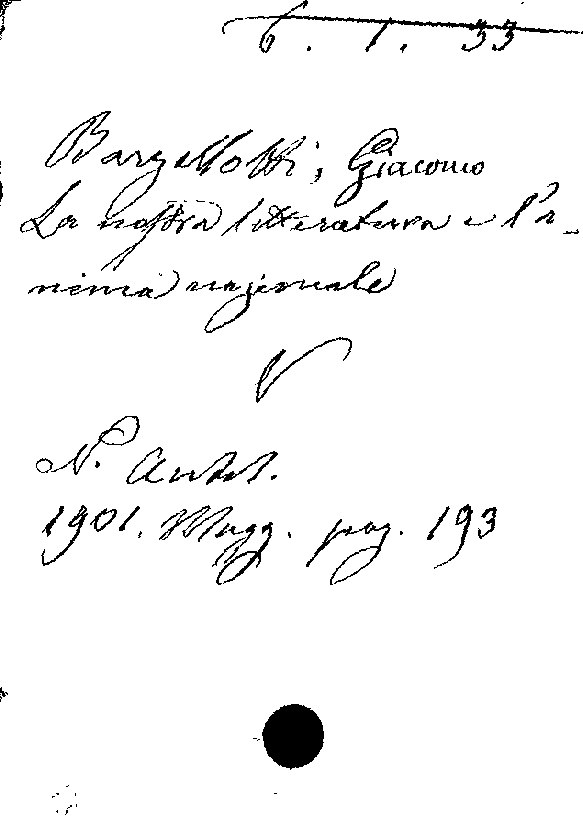 6. 1. 33
Barzellotti, Giacomo
La nostra letteratura e l'a-
nima nazionale
V
N. Antol.
1901. Magg. pag. 193